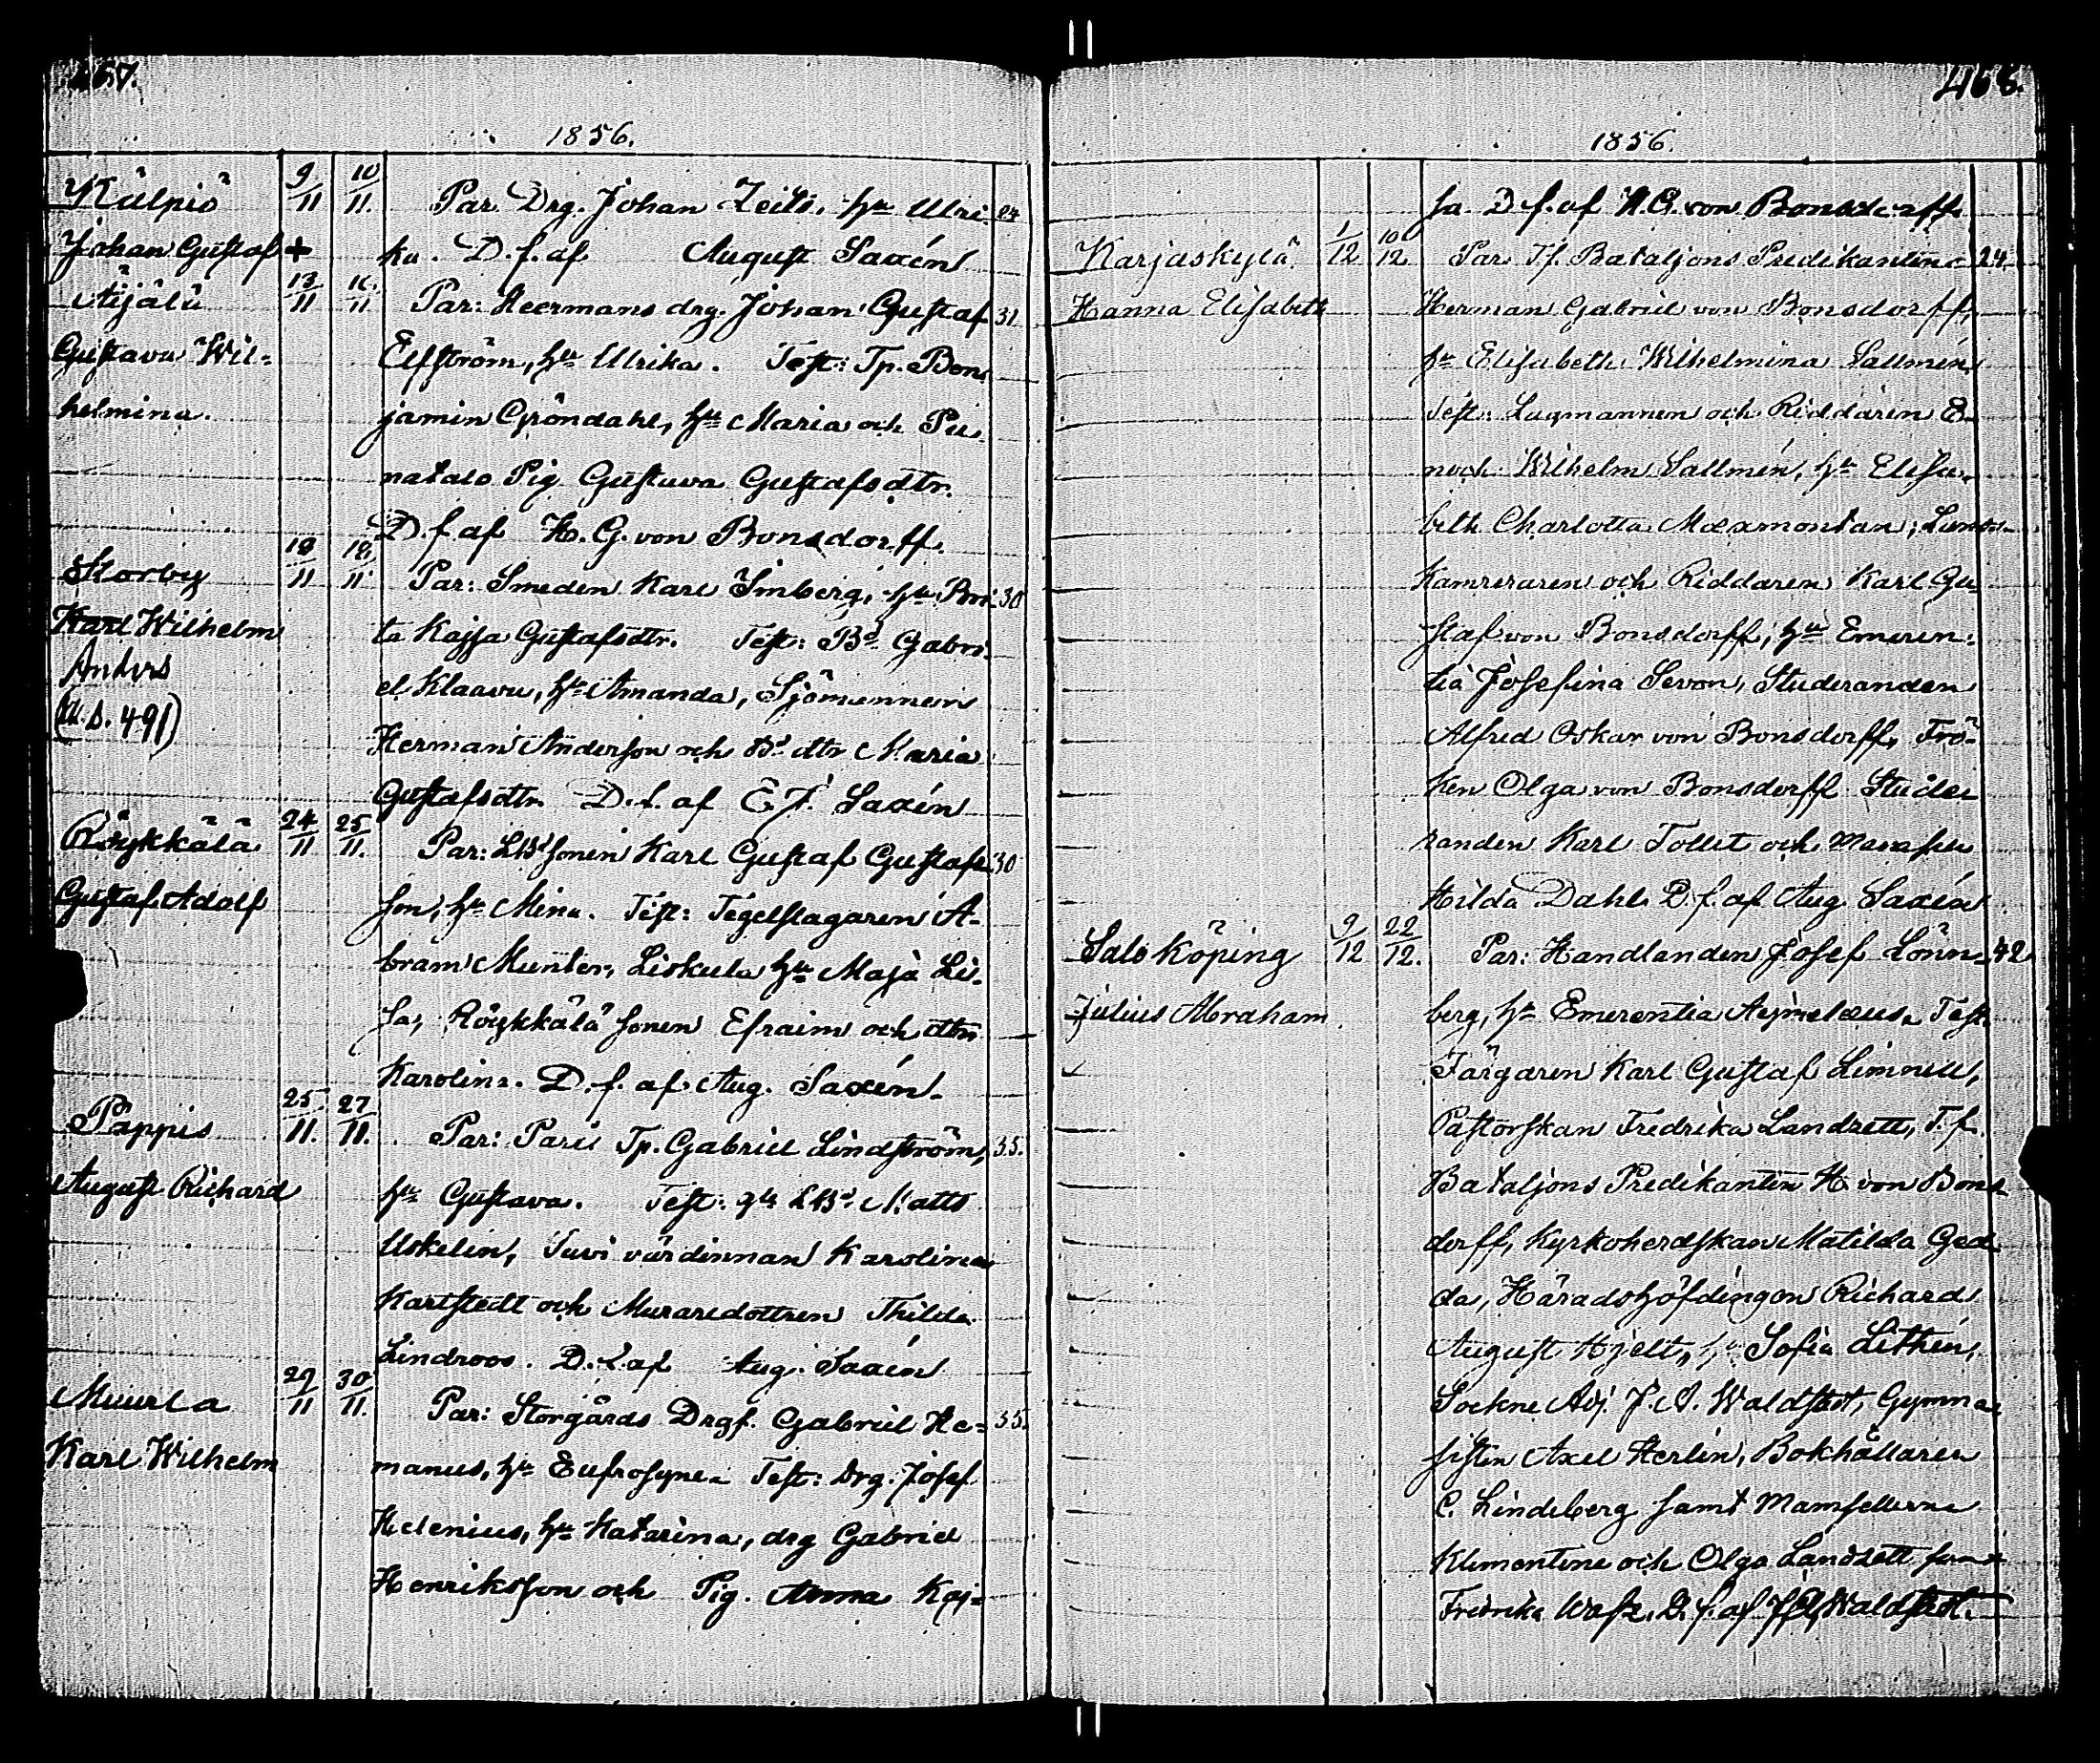 1856.
Kulpio 9/11 10/11. Par. Drg. Johan Zeits, hu Ulri- 24
Johan Gustaf + ka. D. f. af August Saxén
Äijälä 13/11 16/11 Par: Heermans drg. Johan Gustaf 31
Gustava Wil- Elfström, hu Ulrika. Test: Tp. Ben-
helmina. jamin Gröndahl, hu Maria och Pu-
natalo Pig. Gustava Gustafsdtr.
D. f. af H. G. von Bonsdorff.
Korby 18/11 18/11 Par: Smeden Karl Imberg, hu Bri- 30
Karl Wilhelm ta Kajsa Gustafsdtr. Test: Bd Gabri-
Anders el Klaavu, hu Amanda, Sjömannen
s. 491) Herman Anderson och Bd dtr Maria
Gustafsdtr. D. f. af E J. Saxén
Röykkälä 24/11 25/11. Par: LBd sonen Karl Gustaf Gustafs- 30
Gustaf Adolf son, hu Mina. Test: Tegelslagaren A-
bram Munter, Liskula hu Maja Li-
sa, Röykkälä sonen Efraim och dtrn
Karolina. D. f. af Aug. Saxén.
Pappis 25/11. 27/11. Par: Paris Tp. Gabriel Lindström, 35.
August Richard hu Gustava. Test: LBd Matts
Uskelin, värdinnan Karolina
Karlstedt och Muraredottren Thilda
Lindroos. D. f. af Aug. Saxén
Muurla 29/11 30/11. Par: Storgårds Drgf. Gabriel He- 35.
Karl Wilhelm manus, hu Eufrosyne. Test: Drg. Josef
Helenius, hu Katarina, drg Gabriel
Henriksson och Pig. Anna Kaj-
1856.
sa. D. f. af H. G. von Bonsdorff.
Karjaskylä 1/12 10/12 Par. T. f. Bataljons Predikanten 24.
Hanna Elisabeth Herman Gabriel von Bonsdorff,
hu Elisabeth Wilhelmina Sallmén.
Test: Lagmannen och Riddaren E-
noch Wilhelm Sallmén, hu Elisa-
beth Charlotta Maxmontan; Lands-
Kamreraren och Riddaren Karl Gu-
staf von Bonsdorff, hu Emeren-
tia Josefina Sevon, Studeranden
Alfred Oskar von Bonsdorff, Frö-
ken Olga von Bonsdorff Stude-
randen Karl Tollet och Mamsell
Hilda Dahl. D. f. af Aug. Saxén
Salo köping 9/12 22/12. Par: Handlanden Josef Lönn- 42
Julius Abraham. berg, hu Emerentia Aejmelæus. Test:
Färgaren Karl Gustaf Limnell,
Pastorskan Fredrika Landzett, T. f.
Bataljons Predikanten H. von Bons-
dorff, Kyrkoherdskan Matilda Ged-
da, Häradshöfdingen Richard
August Hjelt, hu Sofia Lithén,
Sockne Adj. J. A. Waldstedt, Gymna-
sisten Axel Herlin, Bokhållaren
C. Lindeberg samt Mamsellerna
Klementine och Olga Landzett
Fredrika D. f. af J A Waldstedt.